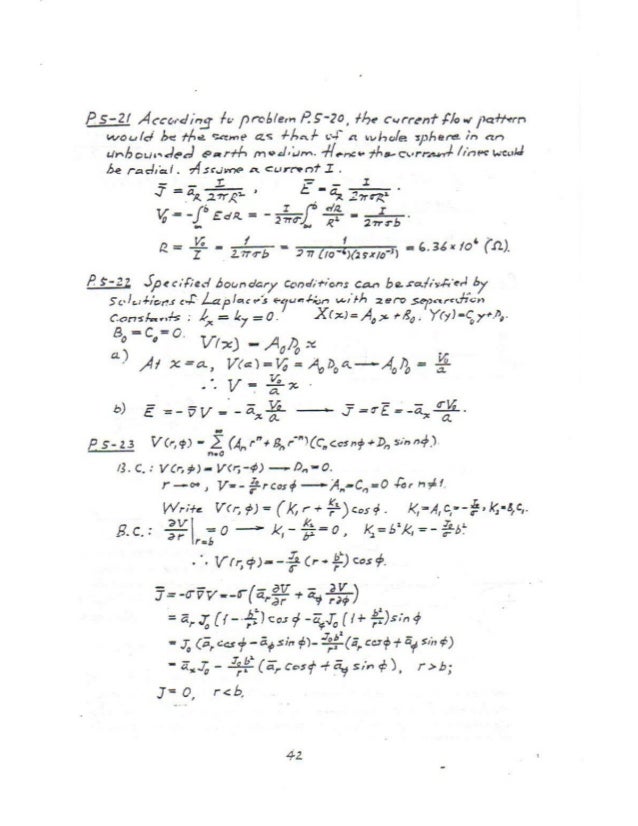 P.5-21 According to problem P.5-20, the current flow pattern
would be the same as that of a whole sphere in an
unbounded earth medium. Hence the current lines would
be radial. Assume a current I.
J̄ = ā_R I/(2πR²), Ē = ā_R I/(2πσR²).
V₀ = -∫_∞^b E dR = -I/(2πσ) ∫_∞^b dR/R² = I/(2πσb).
R = V₀/I = 1/(2πσb) = 1/(2π(10⁻⁶)(25×10⁻³)) = 6.36×10⁶ (Ω).
P.5-22 Specified boundary conditions can be satisfied by
solutions of Laplace's equation with zero separation
constants : k_x = k_y = 0. X(x)=A₀x+B₀. Y(y)=C₀y+D₀.
B₀ = C₀ = 0. V(x) = A₀D₀x
a) At x=a, V(a)=V₀=A₀D₀a → A₀D₀ = V₀/a
∴ V = V₀/a x.
b) Ē = -∇̄V = -ā_x V₀/a → J̄=σĒ = -ā_x σV₀/a.
P.5-23 V(r,φ) = Σ_{n=0}^∞ (A_n rⁿ+B_n r⁻ⁿ)(C_n cos nφ+D_n sin nφ).
B.C.: V(r,φ)=V(r,-φ) → D_n=0.
r→∞, V=-J₀/σ r cos φ → A_n=C_n=0 for n≠1.
Write V(r,φ) = (K₁r + K₂/r) cos φ. K₁=A₁C₁=-J₀/σ, K₂=B₁C₁.
B.C.: ∂V/∂r |_{r=b} = 0 → K₁ - K₂/b² = 0, K₂=b²K₁=-J₀/σ b².
∴ V(r,φ)=-J₀/σ (r+b²/r) cos φ.
J̄=-σ∇̄V=-σ(ā_r ∂V/∂r + ā_φ ∂V/r∂φ)
= ā_r J₀(1-b²/r²) cos φ - ā_φ J₀(1+b²/r²) sin φ
= J₀(ā_r cos φ - ā_φ sin φ) - J₀b²/r² (ā_r cos φ + ā_φ sin φ)
= ā_x J₀ - J₀b²/r² (ā_r cos φ + ā_φ sin φ), r>b;
J=0, r<b.
42